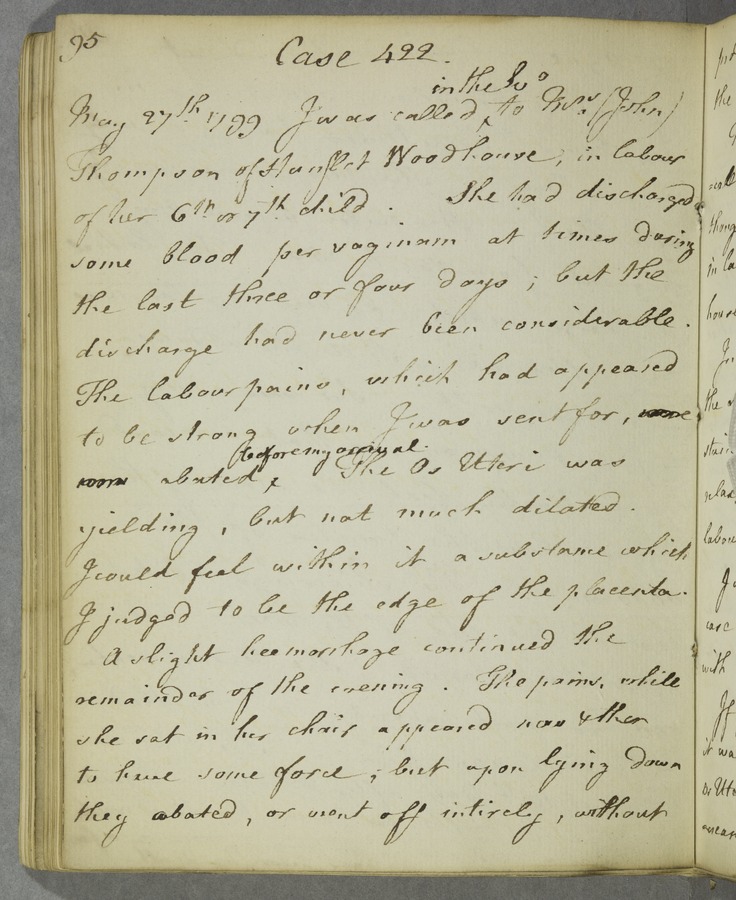 95
Case 422.
in the Evo
May 27th. 1799 I was called, to Mrs. (John)
Thompson of Hunslet Woodhouse, in labour
of her 6th or 7th child. She had discharged
some blood per vaginam at times during
the last three or four days; but the
discharge had never been considerable.
The labour pains, which had appeared
to be strong when I was sent for,
before my arrival.
abated, The Os Uteri was
yielding, but not much dilated.
I could feel within it a substance which
I judged to be the edge of the placenta.
A slight hœmorrhage continued the
remainder of the evening. The pains, while
she sat in her chair appeared now & then
to have some force; but upon lying down
they abated, or went off intirely, without